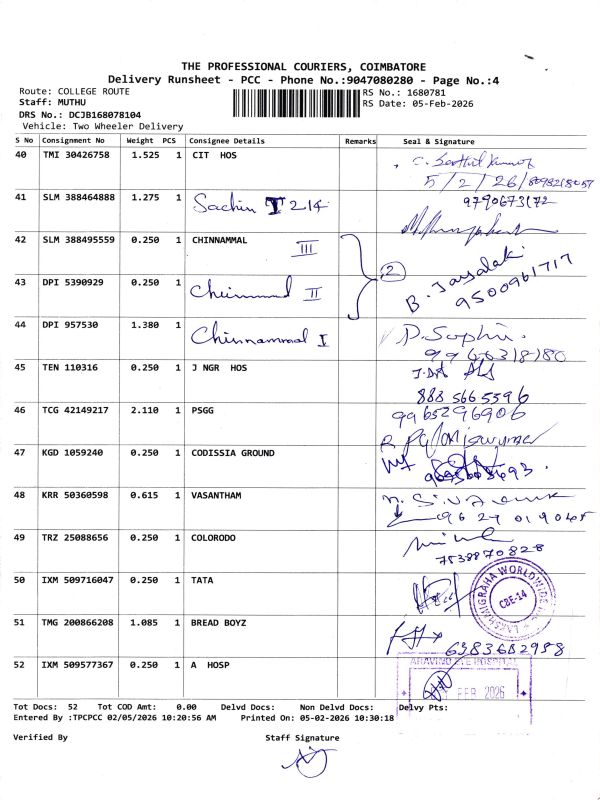 THE PROFESSIONAL COURIERS, COIMBATORE
Delivery Runsheet - PCC - Phone No.:9047080280 - Page No.:4
Route: COLLEGE ROUTE
RS No.: 1680781
Staff: MUTHU
RS Date: 05-Feb-2026
DRS No.: DCJB168078104
Vehicle: Two Wheeler Delivery
S No Consignment No Weight PCS Consignee Details Remarks Seal & Signature
40 TMI 30426758 1.525 1 CIT HOS
5/2/26/8098218057
41 SLM 388464888 1.275 1 Sachin I 214 9790673172
42 SLM 388495559 0.250 1 CHINNAMMAL III
2 B. Jayalaki
43 DPI 5390929 0.250 1 II 9500961717
44 DPI 957530 1.380 1 Chinnammal I
45 TEN 110316 0.250 1 J NGR HOS
888 566 5596
46 TCG 42149217 2.110 1 PSGG 9965296906
47 KGD 1059240 0.250 1 CODISSIA GROUND
48 KRR 50360598 0.615 1 VASANTHAM
96 29 019045
49 TRZ 25088656 0.250 1 COLORODO
7538870828
50 IXM 509716047 0.250 1 TATA
LAKSHMIGRAHA WORLDWIDE
CBE-14
51 TMG 200866208 1.085 1 BREAD BOYZ 6383682958
52 IXM 509577367 0.250 1 A HOSP
ARAVIND EYE HOSPITAL
FEB 2026
Tot Docs: 52 Tot COD Amt: 0.00 Delvd Docs: Non Delvd Docs: Delvy Pts:
Entered By :TPCPCC 02/05/2026 10:20:56 AM Printed On: 05-02-2026 10:30:18
Verified By Staff Signature